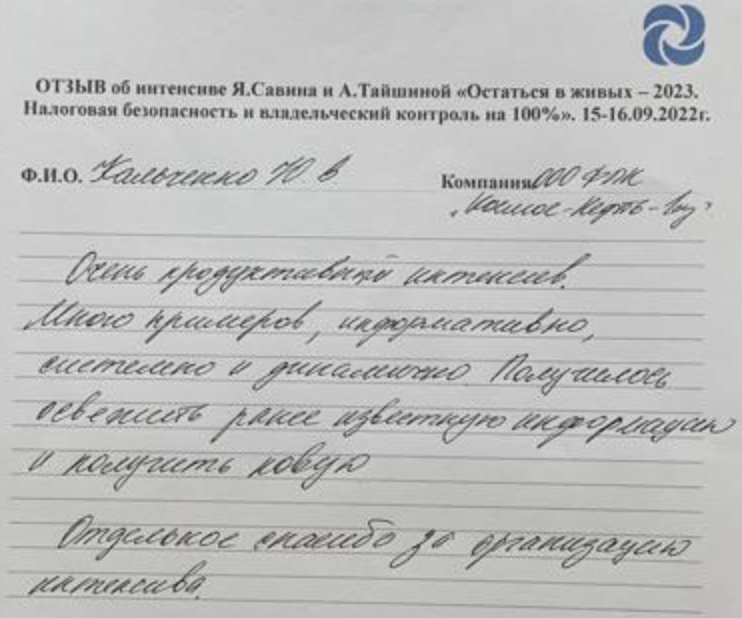 ОТЗЫВ об интенсиве Я.Савина и А.Тайшиной «Остаться в живых – 2023.
Налоговая безопасность и владельческий контроль на 100%». 15-16.09.2022г.
Ф.И.О. Кальченко Ю.В. Компания ООО
"Космос-Нефть-Газ"
Очень продуктивный интенсив.
Много примеров, информативно,
системно и динамично. Получилось
освежить ранее известную информацию
и получить новую
Отдельное спасибо за организацию
интенсива.